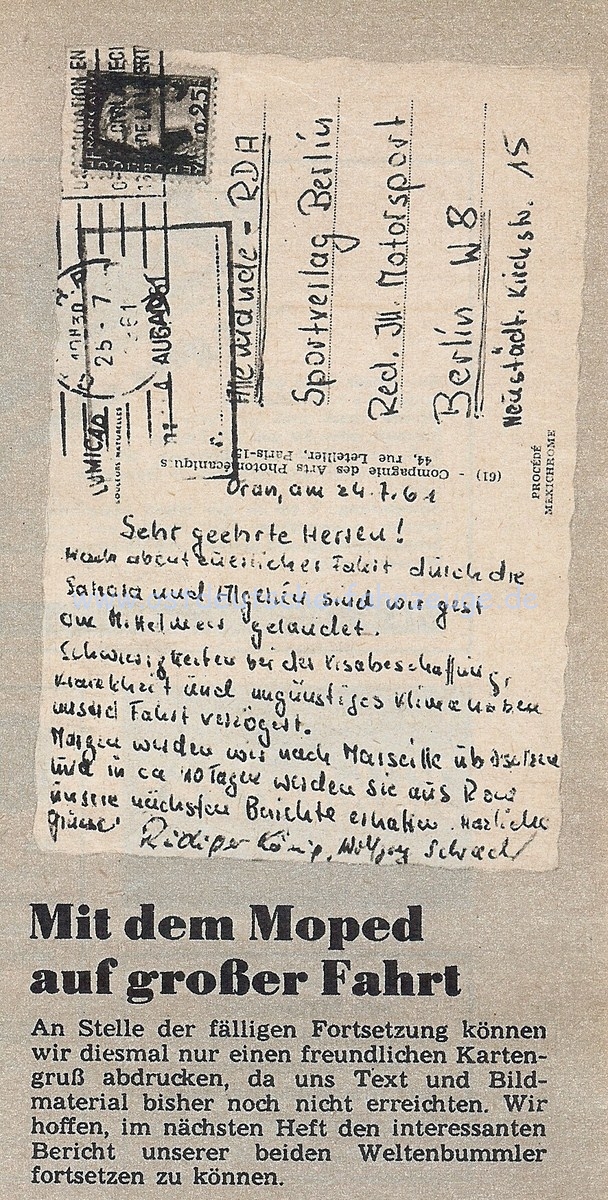 FRANÇAISE
0,25
25-7
Allemande - RDA
Sportverlag Berlin
Red. Ill. Motorsport
Berlin W 8
Neustädt. Kirchstr. 15
LUMICAP
COULEURS NATURELLES
(61) - Compagnie des Arts Photomécaniques
44, rue Letellier, Paris-15
PROCÉDÉ
MEXICHROME
Oran, am 24.7.61
Sehr geehrte Herren!
Nach abenteuerlicher Fahrt durch die
Sahara und Algerien sind wir gest.
am Mittelmeer gelandet.
Schwierigkeiten bei der Visabeschaffung,
Krankheit und ungünstiges Klima haben
unsere Fahrt verzögert.
Morgen werden wir nach Marseille übersetzen
und in ca 10 Tagen werden Sie aus Rom
unsere nächsten Berichte erhalten. Herzliche
Grüsse
Rüdiger König, Wolfgang
Mit dem Moped
auf großer Fahrt
An Stelle der fälligen Fortsetzung können
wir diesmal nur einen freundlichen Karten-
gruß abdrucken, da uns Text und Bild-
material bisher noch nicht erreichten. Wir
hoffen, im nächsten Heft den interessanten
Bericht unserer beiden Weltenbummler
fortsetzen zu können.